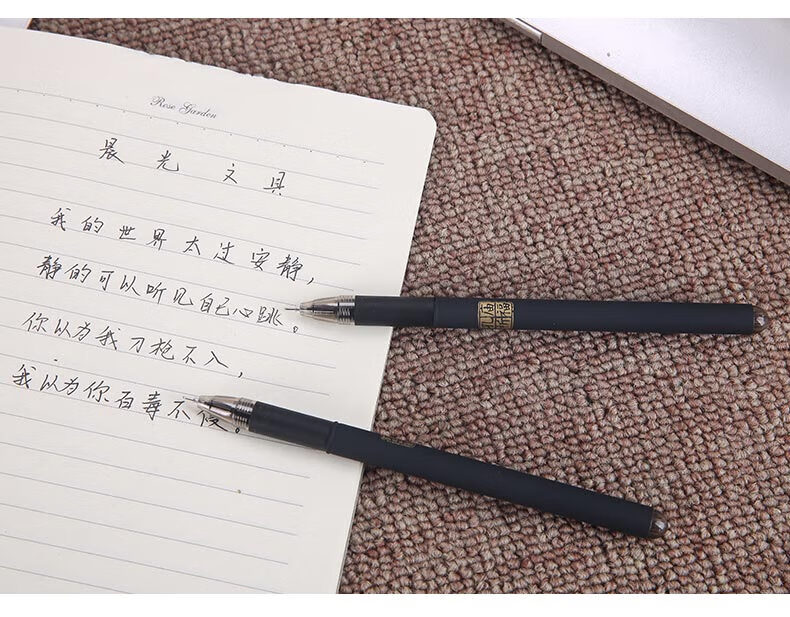 Rose Garden
晨光文具
我的世界太过安静,
静的可以听见自己心跳。
你以为我刀枪不入,
我以为你百毒不侵。
孔庙祈福